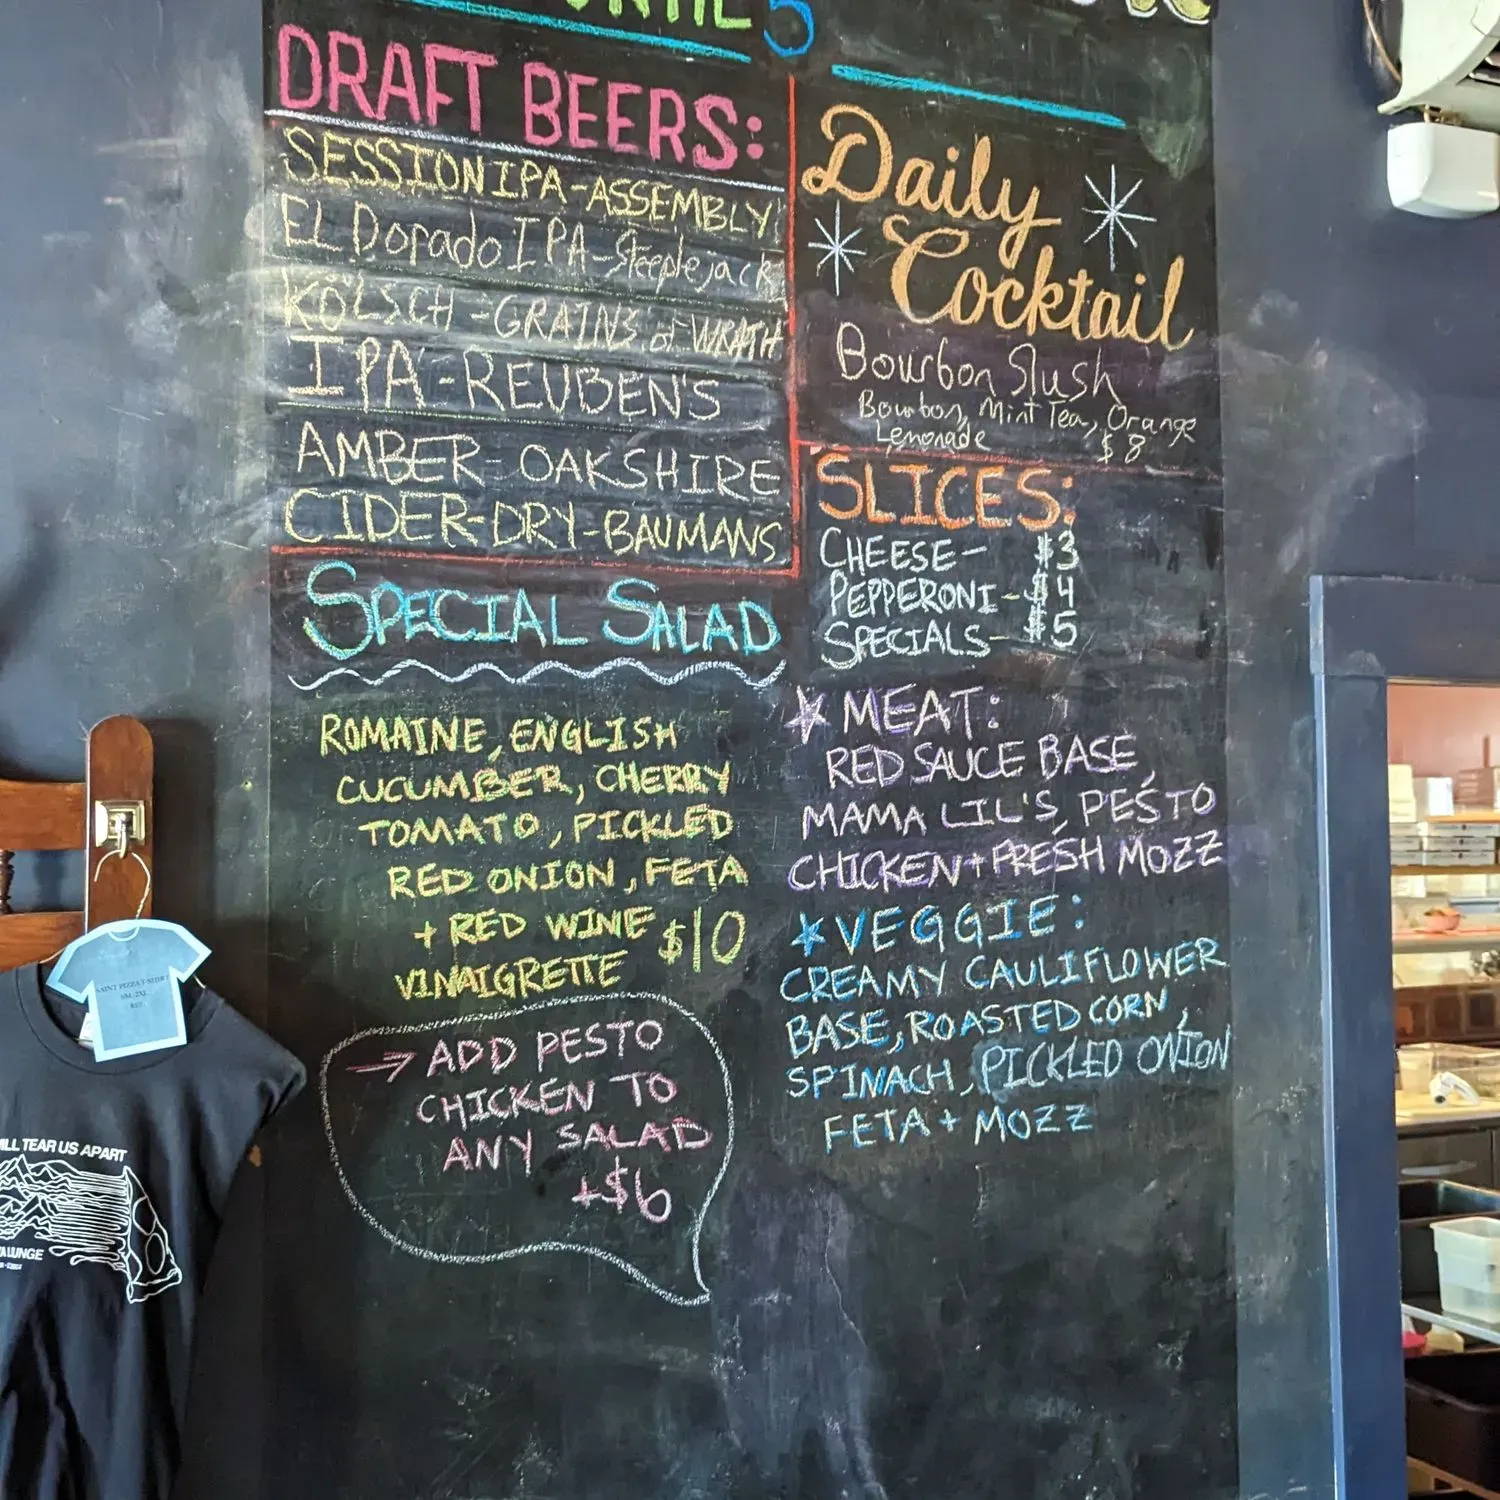 5
DRAFT BEERS:
SESSION IPA-ASSEMBLY
EL Dorado IPA-Steeplejack
KÖLSCH-GRAINS of WRATH
IPA-REUBEN'S
AMBER-OAKSHIRE
CIDER-DRY-BAUMANS
SPECIAL SALAD
ROMAINE, ENGLISH
CUCUMBER, CHERRY
TOMATO, PICKLED
RED ONION, FETA
+ RED WINE $10
VINAIGRETTE
→ ADD PESTO
CHICKEN TO
ANY SALAD
+$6
Daily
Cocktail
Bourbon Slush
Bourbon, Mint Tea, Orange
Lemonade $8
SLICES:
CHEESE- $3
PEPPERONI- $4
SPECIALS- $5
MEAT:
RED SAUCE BASE,
MAMA LIL'S, PESTO
CHICKEN + FRESH MOZZ
VEGGIE:
CREAMY CAULIFLOWER
BASE, ROASTED CORN,
SPINACH, PICKLED ONION
FETA + MOZZ
SAINT PIZZA T-SHIRT
SM-2XL
ILL TEAR US APART